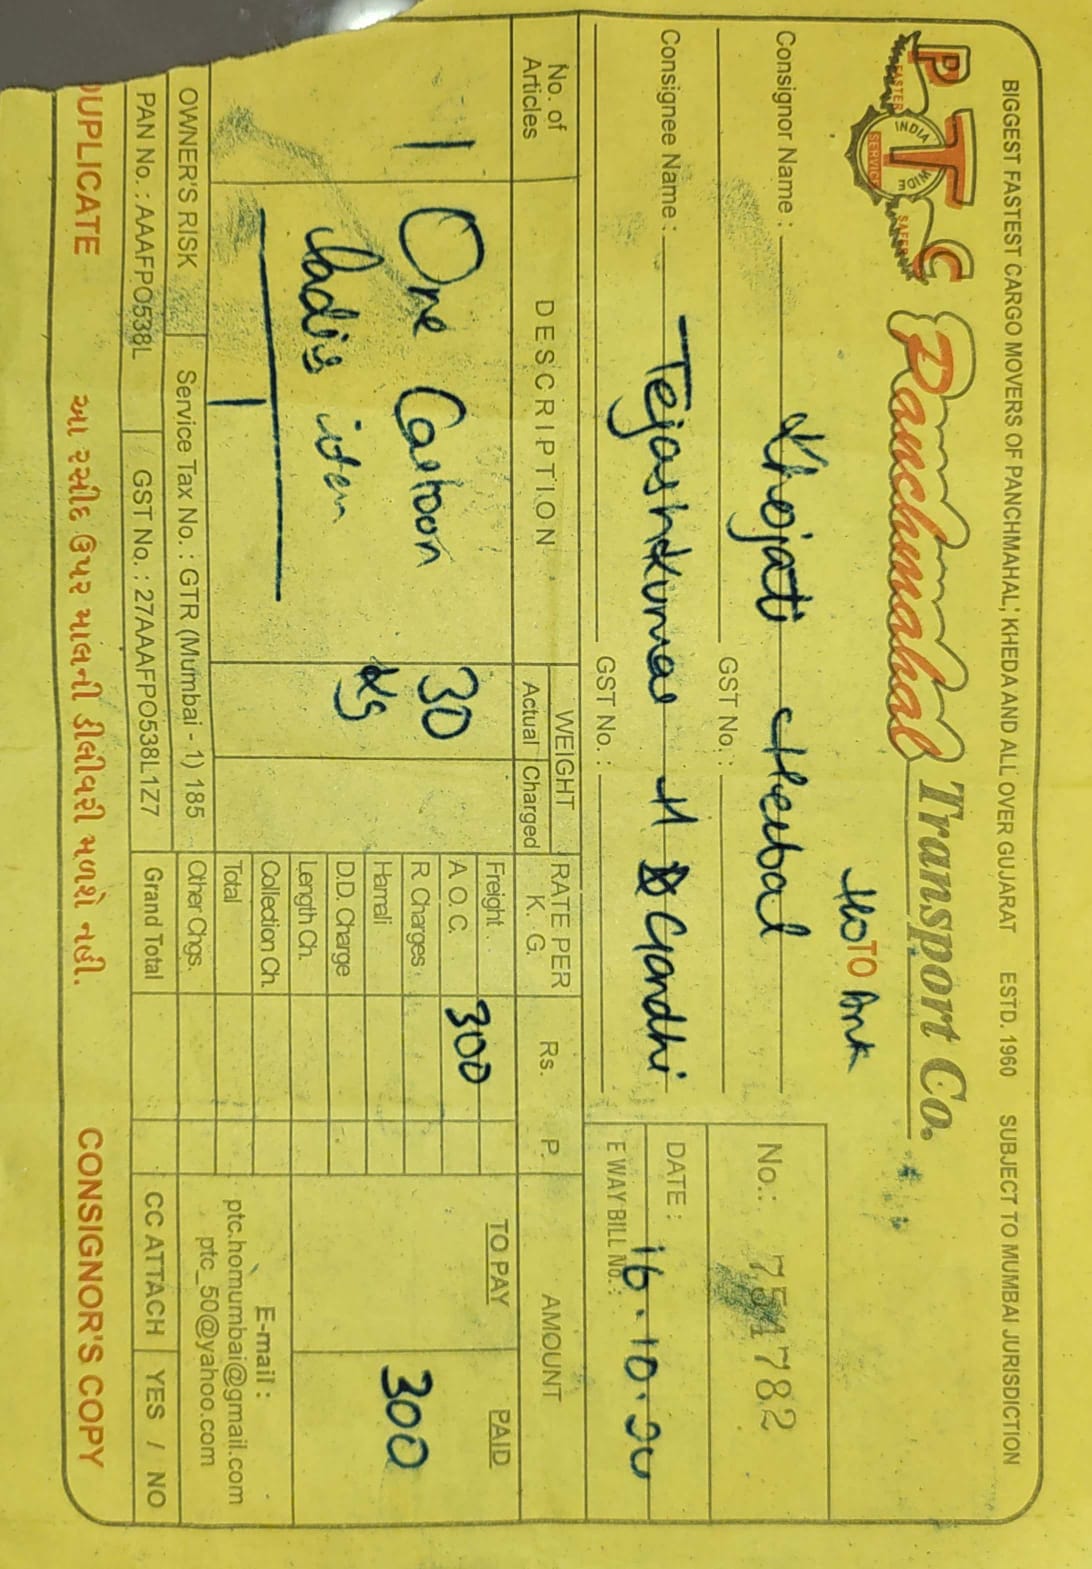 BIGGEST FASTEST CARGO MOVERS OF PANCHMAHAL, KHEDA AND ALL OVER GUJARAT ESTD. 1960 SUBJECT TO MUMBAI JURISDICTION
PTC Panchmahal Transport Co.
FASTER INDIA WIDE SERVICE SAFER
Ho TO Ank
No.: 754782
Consignor Name : Khojati Herbal
GST No. :
DATE : 16.10.20
Consignee Name : Tejashkumar H Gandhi
GST No. :
E WAY BILL No. :
No. of Articles DESCRIPTION WEIGHT RATE PER K. G. Rs. P. AMOUNT
Actual Charged
1 One Cartoon 30 Kg
Ladis item
Freight TO PAY PAID
A O. C. 300
R. Charges 300
Hamali
D.D. Charge
Length Ch.
Collection Ch.
Total
Other Chgs.
Grand Total
E-mail :
ptc.homumbai@gmail.com
ptc_50@yahoo.com
OWNER'S RISK Service Tax No. : GTR (Mumbai - 1) 185
PAN No. : AAAFPO538L GST No. : 27AAAFPO538L1Z7 CC ATTACH YES / NO
DUPLICATE આ રસીદ ઉપર માલની ડીલીવરી મળશે નહી. CONSIGNOR'S COPY